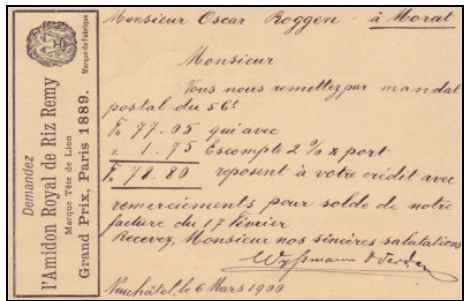 Demandez
l'Amidon Royal de Riz Remy
Marque Tête de Lion
Grand Prix, Paris 1889.
Marque de Fabrique
Monsieur Oscar Roggen à Morat
Monsieur
Vous nous remettez par mandat
postal du 5 ct
Fr 77.05 qui avec
" 1.75 Escompte 2 % & port
Fr 78.80 reposent à votre crédit avec
remerciements pour solde de notre
facture du 17 Février
Recevez, Monsieur nos sincères salutations
Neuchâtel, le 6 Mars 1900